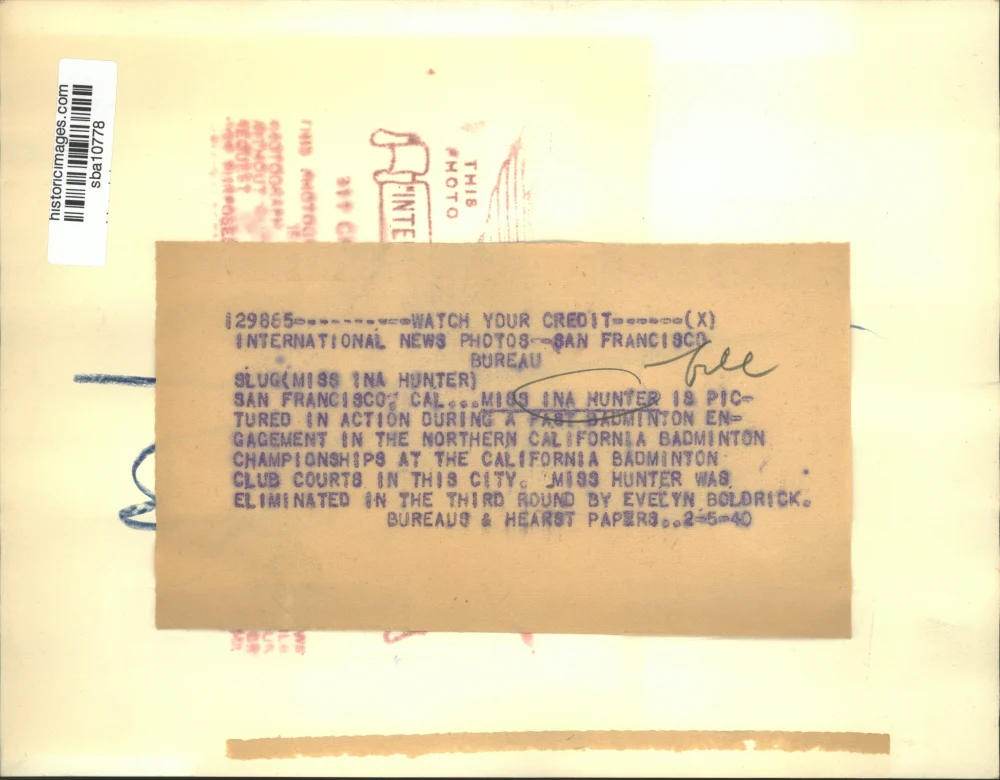 historicimages.com
sba10778
THIS
PHOTO
INTE
THIS PHOTOG
WITHOUT
REQUEST
129865----------WATCH YOUR CREDIT------(X)
INTERNATIONAL NEWS PHOTOS--SAN FRANCISCO
BUREAU
SLUG(MISS INA HUNTER)
SAN FRANCISCO, CAL...MISS INA HUNTER IS PIC-
TURED IN ACTION DURING A FAST BADMINTON EN-
GAGEMENT IN THE NORTHERN CALIFORNIA BADMINTON
CHAMPIONSHIPS AT THE CALIFORNIA BADMINTON
CLUB COURTS IN THIS CITY. MISS HUNTER WAS
ELIMINATED IN THE THIRD ROUND BY EVELYN BOLDRICK.
BUREAUS & HEARST PAPERS..2-5-40